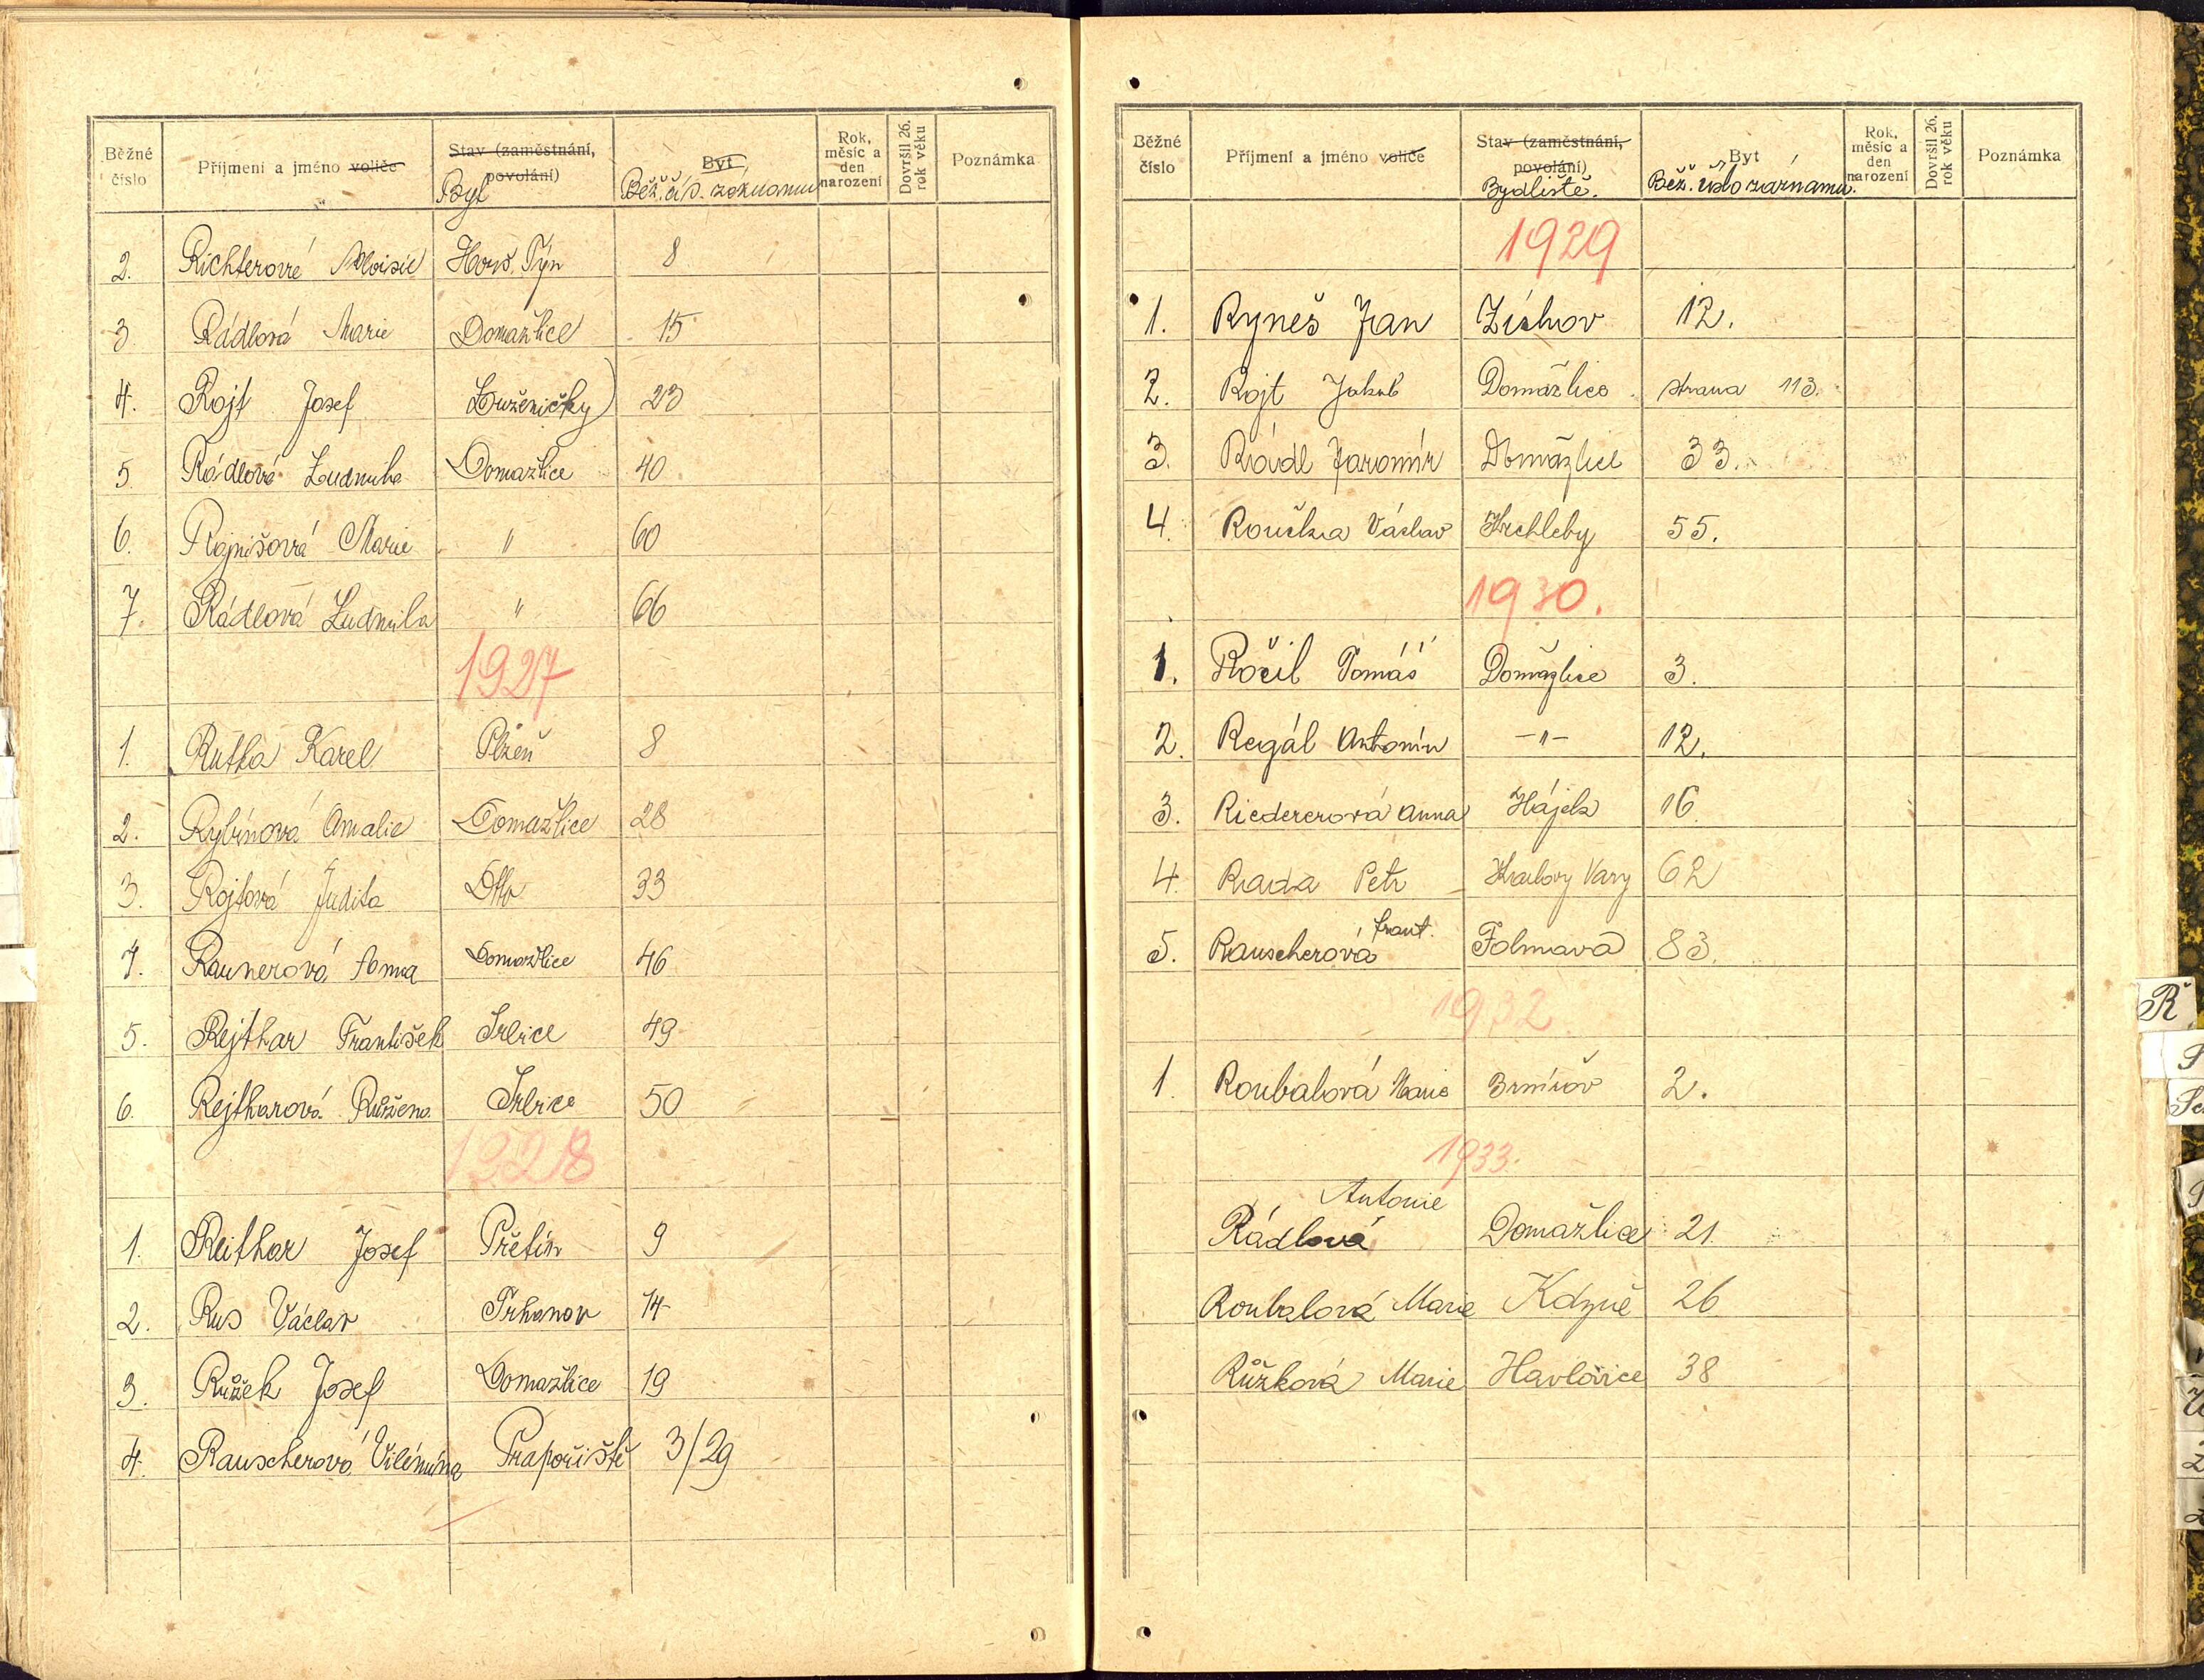 Běžné číslo Příjmení a jméno voliče Stav (zaměstnání, povolání) Byt Rok, měsíc a den narození Dovršil 26. rok věku Poznámka
Byt Běž. čís. záznamu
2. Richterové Aloisie Horš. Týn 8
3. Rádlová Marie Domažlice 15
4. Rojt Josef Luženičky 23
5. Rádlová Ludmila Domažlice 40
6. Rajnišová Marie " 60
7. Rádlová Ludmila " 66
1927
1. Rutka Karel Plzeň 8
2. Rybínová Amalie Domažlice 28
3. Rojtová Judita 33
4. Raunerová Anna Domažlice 46
5. Rejthar František Srbice 49
6. Rejtharová Růžena Srbice 50
1928
1. Reithar Josef Přetín 9
2. Rus Václav Trhanov 14
3. Růžek Josef Domažlice 19
4. Rauscherová Vilémína Prapořiště 3/29
Běžné číslo Příjmení a jméno voliče Stav (zaměstnání, povolání) Byt Rok, měsíc a den narození Dovršil 26. rok věku Poznámka
Bydliště. Běž. číslo záznamu.
1929
1. Ryneš Jan Zíchov 12.
2. Rojt Jakub Domažlice strana 113.
3. Rádl Jaromír Domažlice 33.
4. Roučka Václav Hrchleby 55.
1930.
1. Ročil Tomáš Domažlice 3.
2. Regál Antonín -"- 12.
3. Riedererová Anna Hájek 16.
4. Rada Petr Karlovy Vary 62
5. Rauscherová Frant. Folmava 83.
1932.
1. Roubalová Marie Brnířov 2.
1933.
Rádlová Antonie Domažlice 21.
Roubalová Marie Kdyně 26
Růžková Marie Havlovice 38
Ř
S